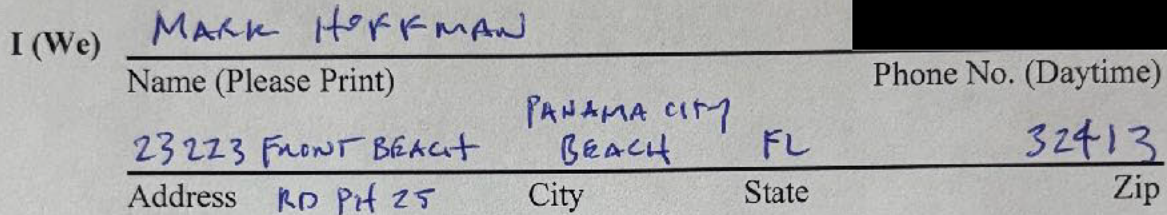 I (We) MARK HOFFMAN
Name (Please Print) Phone No. (Daytime)
PANAMA CITY
23223 FRONT BEACH BEACH FL 32413
Address RD PH 25 City State Zip